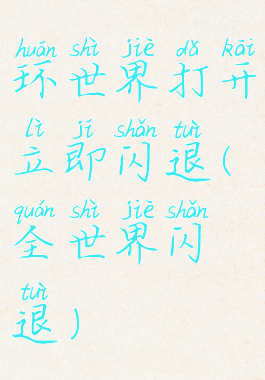 huán shì jiè dǎ kāi
环世界打开
lì jí shǎn tuì
立即闪退(
quán shì jiè shǎn
全世界闪
tuì
退)